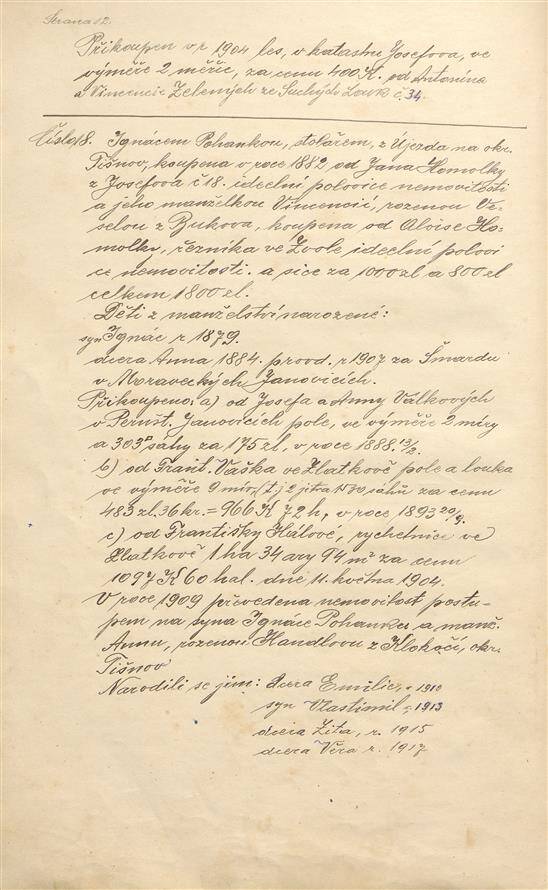 Strana 12.
Přikoupen v r 1904 les, v katastru Josefova, ve
výměře 2 měřic, za cenu 400 K. od Antonína
a Vincencie Zelených ze Suchých Louk č. 34.
Číslo 18. Ignácem Pohankou, stolářem, z Újezda na okr.
Tišnov, koupena v roce 1882 od Jana Homolky
z Josefova č 18. ideelní polovice nemovitosti
a jeho manželkou Vincencií, rozenou Ve=
selou z Bukova, koupena od Aloise Ho=
molky, řezníka ve Zvole ideelní polovi
ce nemovitosti. a sice za 1000 zl a 800 zl
celkem 1800 zl.
Děti z manželství narozené:
syn Ignác r 1879.
dcera Anna 1884. provd. r 1907 za Šmardu
v Moraveckých Janovicích.
Přikoupeno: a) od Josefa a Anny Válkových
v Pernšt. Janovicích pole, ve výměře 2 míry
a 303° sáhy za 175 zl, v roce 1888. 13/2.
b) od Frant. Vaška ve Zlatkově pole a louka
ve výměře 9 mír, (t.j 2 jitra 1530 sáhů za cenu
483 zl. 36 kr. = 966 K 72 h, v roce 1893 20/9.
c) od Františky Hálové, rychetnice ve
Zlatkově 1 ha 34 ary 94 m² za cenu
1097 K 60 hal. dne 11. května 1904.
V roce 1909 převedena nemovitost postu-
pem na syna Ignáce Pohanku a manž.
Annu, rozenou Handlovu z Klokočí, okr.
Tišnov
Narodili se jim: dcera Emilie, r 1910
syn Vlastimil r 1913
dcera Zita, r. 1915
dcera Věra r. 1917